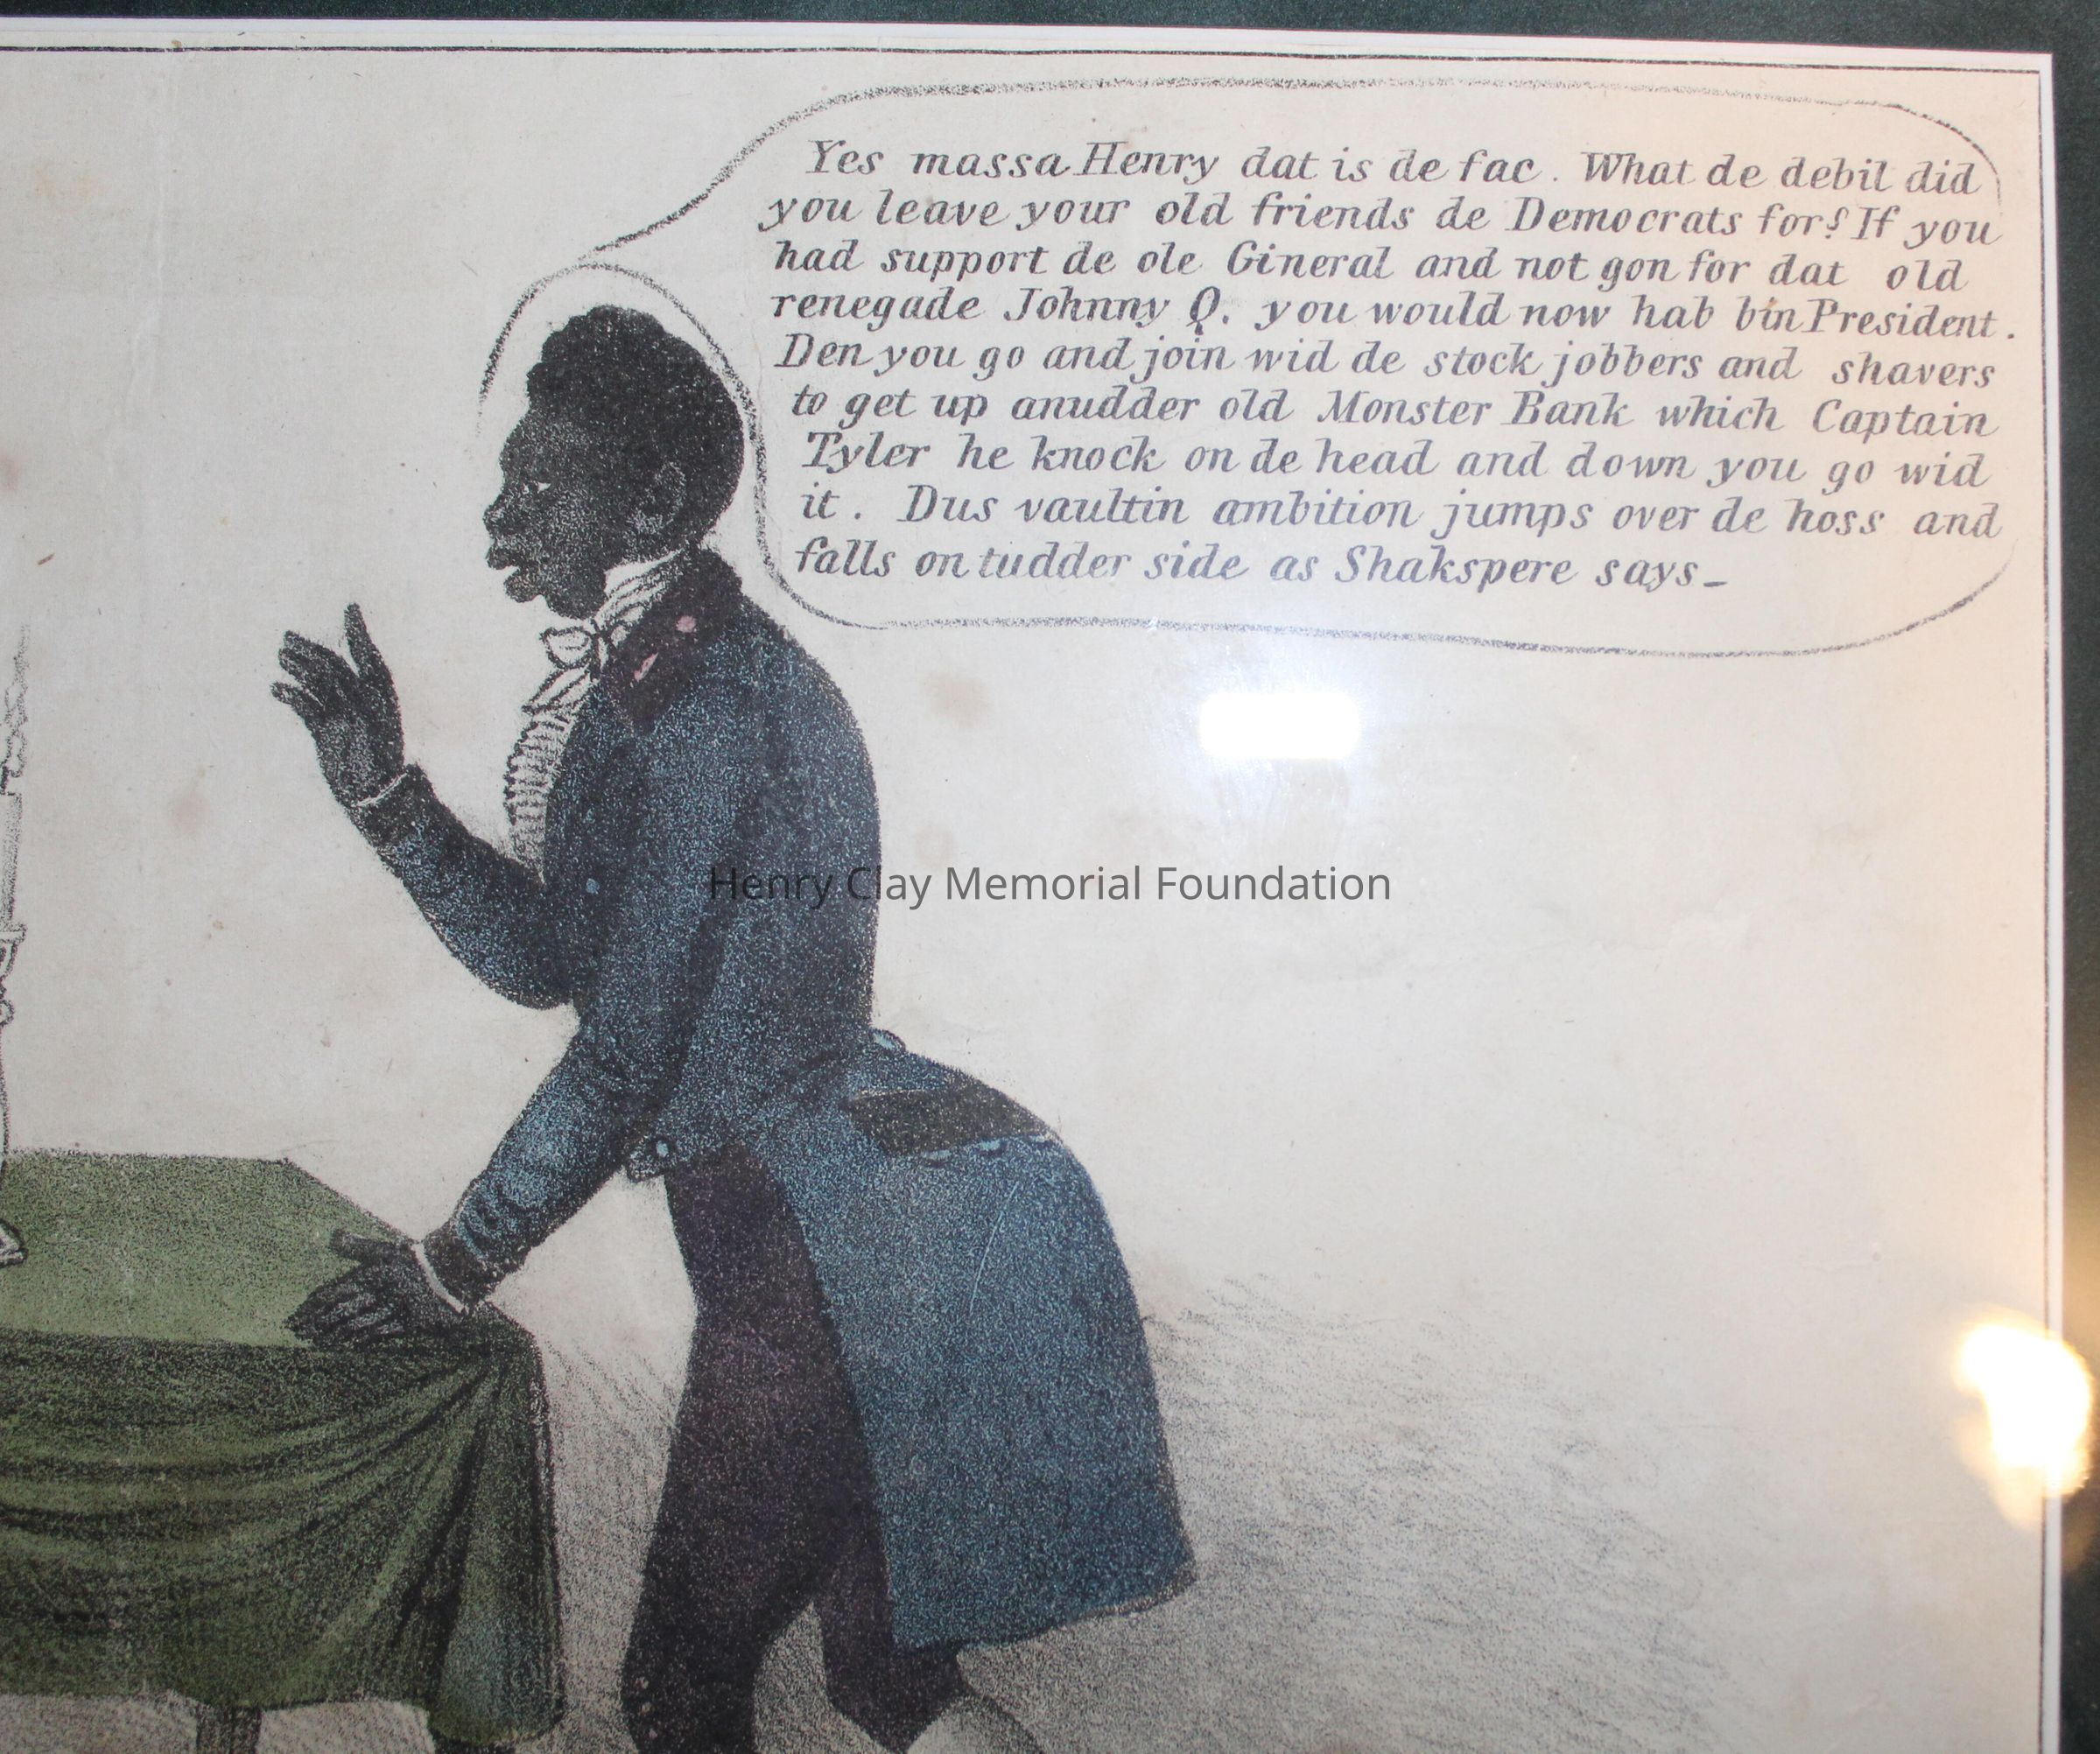 Yes massa Henry dat is de fac. What de debil did
you leave your old friends de Democrats for? If you
had support de ole Gineral and not gon for dat old
renegade Johnny Q. you would now hab bin President.
Den you go and join wid de stock jobbers and shavers
to get up anudder old Monster Bank which Captain
Tyler he knock on de head and down you go wid
it. Dus vaultin ambition jumps over de hoss and
falls on tudder side as Shakspere says_
Henry Clay Memorial Foundation